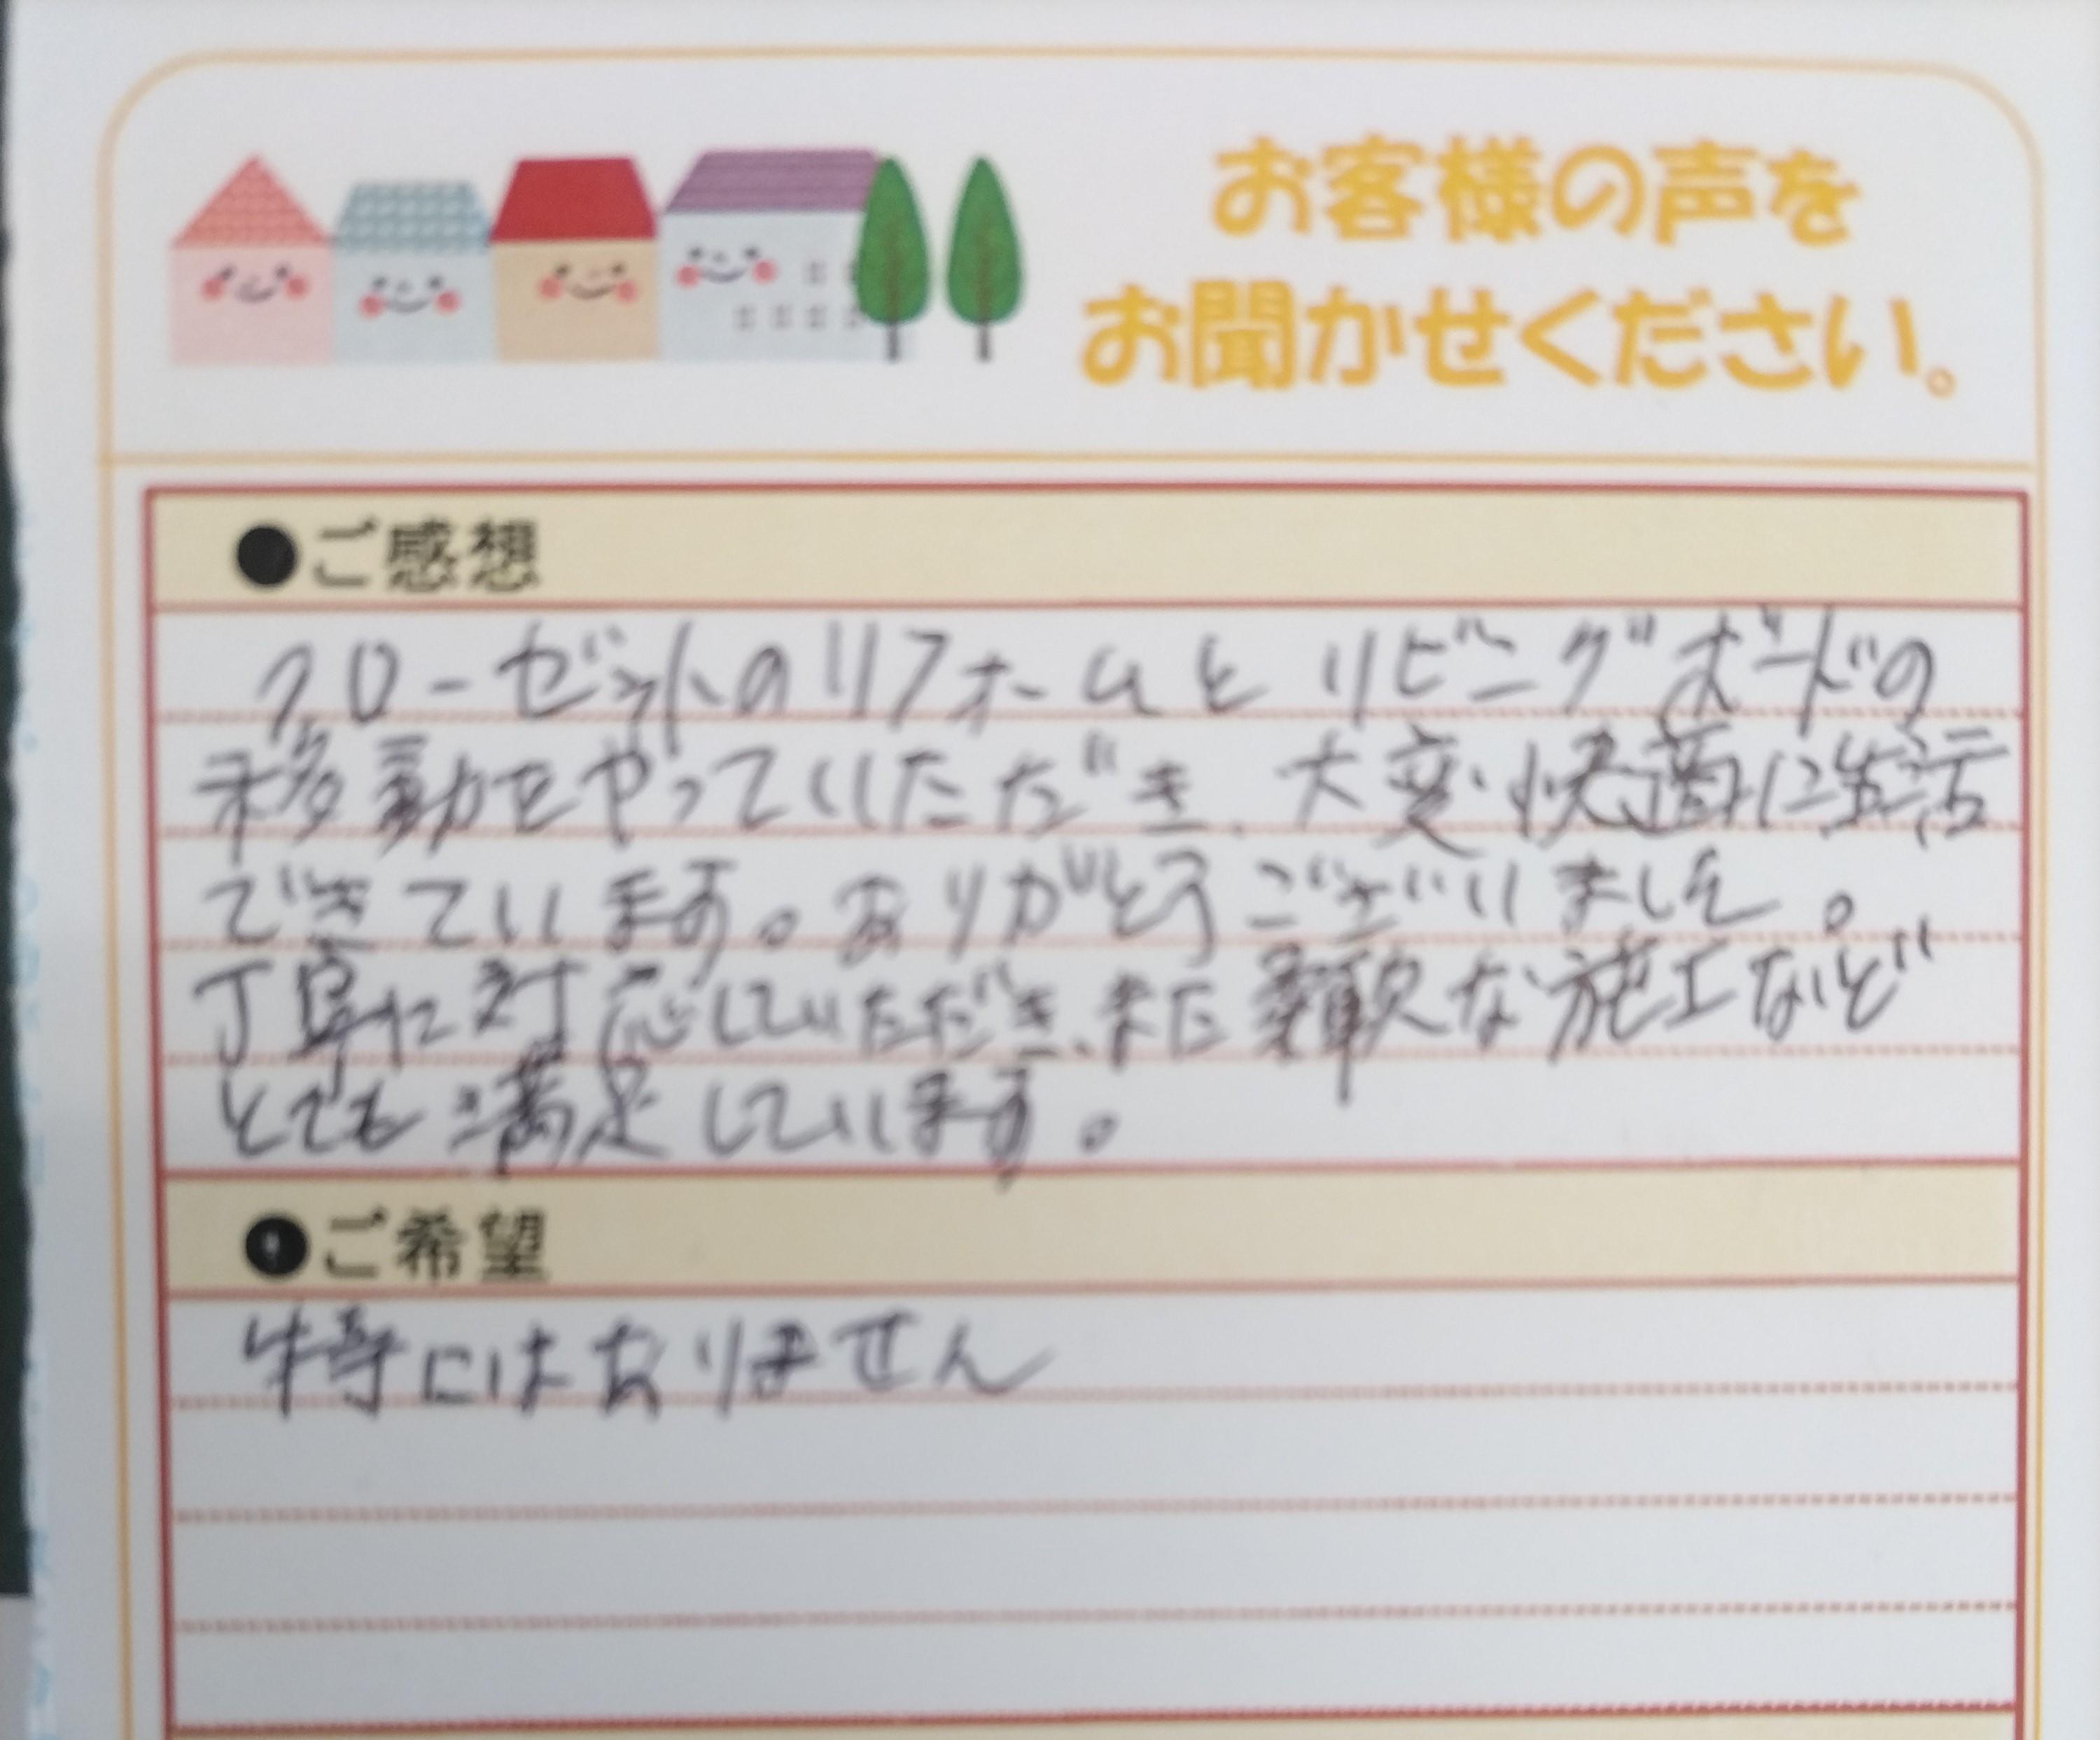 お客様の声を
お聞かせください。
●ご感想
クローゼットのリフォームと リビングボードの
移動をやっていただき、大変快適に生活
できています。ありがとうございました。
丁寧に対応していただき、また柔軟な施工など
とても満足しています。
●ご希望
特にはありません